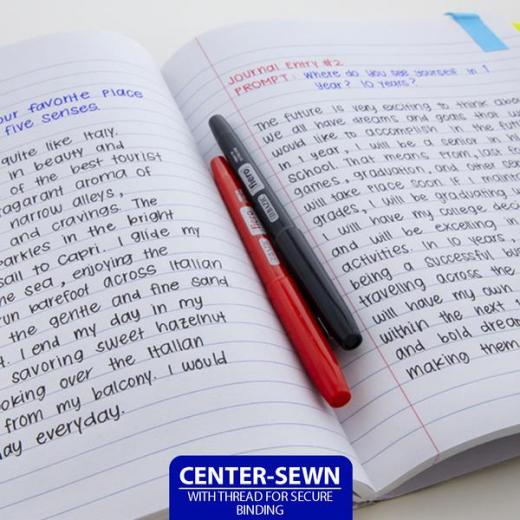 our favorite place
five senses.
quite like Italy.
in beauty and
of the best tourist
ragarant aroma of
narrow alleys,
and cravings. The
parkles in the bright
sail to Capri. I glide my
he sea, enjoying the
run barefoot across Italian
the gentle and fine sand
. I end my day in my
savoring sweet hazelnut
ooking over the Italian
from my balcony. I would
ay everyday.
Journal Entry #2
PROMPT: Where do you see yourself in 1
year? 10 years?
The future is very exciting to think abou
We all have dreams and goals that w
would like to accomplish in the futu
In 1 year, I will be a senior in
school. That means prom, last
games, graduation, and other se
will take place soon. If I maint
grades, I will be graduating
I will have my college deci
and will be excelling in
activities. In 10 years,
being a successful bu
traveling across the
will have my own
within the next
and bold drea
making them
fiero
fiero
CENTER-SEWN
WITH THREAD FOR SECURE
BINDING